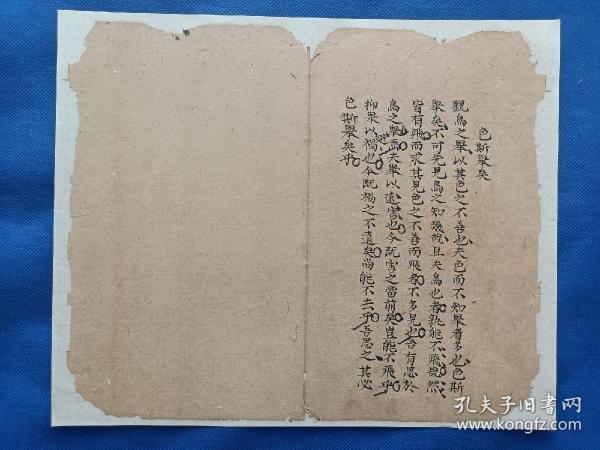 色斯舉矣
觀鳥之舉以其色之不善也夫色而不知舉者多也色斯
舉矣不可先見鳥之知幾哉且夫鳥也者孰能不飛哉然
皆有飛而求其見色之不善而飛者不多見也吾有思於
鳥之舉焉夫舉以遠害也今既害之當前矣豈能不飛乎
抑舉以禍也今既禍之不遠矣尚能不去乎吾思之其必
避
色斯舉矣乎
孔夫子旧書网
www.kongfz.com